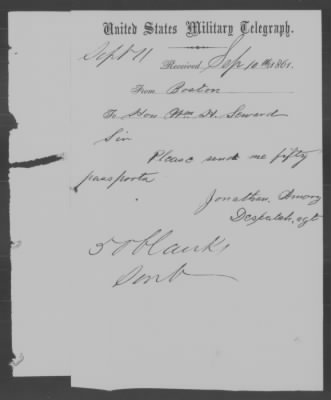 United States Military Telegraph.
Sept 11
Received, Sep 10th 1861.
From Boston
To Hon Wm H. Seward
Sir
Please send me fifty
passports
Jonathan Amory
Despatch agt
50 blanks
Sent